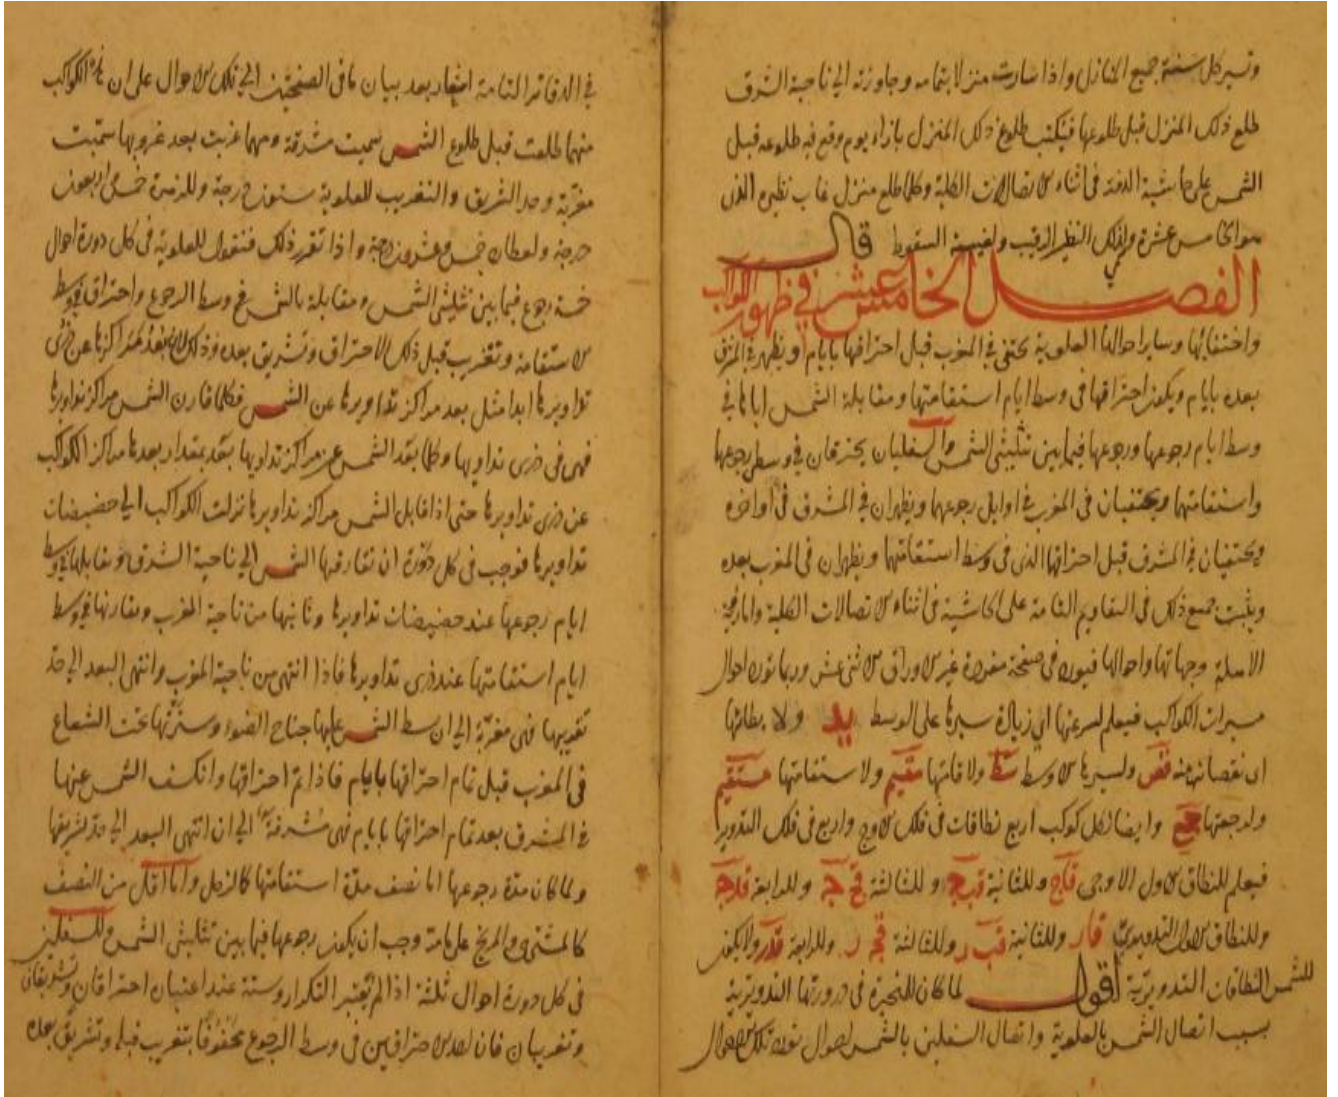 وتسير كل سنة جميع المنازل واذا سارت منزلا بتمامه وجاوزته الي ناحية الشرق
طلع ذلك المنزل قبل طلوعها فيكتب طلوع ذلك المنزل بازاء يوم وقع فيه طلوعه قبل
الشمس علي حاشية الدفة في اثناء الاتصالات الكلية وكلما طلع منزل غاب نظيره الذي
هو الخامس عشرة ولذلك النظير الرقيب ولغيبته السقوط قال
الفصل الخامس عشر في ظهور الكواكب
واختفائها وساير احوالها العلوية يختفي في المغرب قبل احتراقها بايام ويظهر في المشرق
بعده بايام ويكون احتراقها في وسط ايام استقامتها ومقابلة الشمس اياها في
وسط ايام رجوعها ورجوعها فيما بين تثليثي الشمس والسفليان يحترقان في وسطي رجوعها
واستقامتها ويختفيان في المغرب في اوايل رجوعها ويظهران في المشرق في اواخره
ويختفيان في المشرق قبل احتراقها الذي في وسط استقامتها ويظهران في المغرب بعده
ويثبت جميع ذلك في التقاويم التامة علي الحاشية في اثناء الاتصالات الكلية واما رقية
الاهلة وجهاتها واحوالها فيورد في صفحة مفردة غير الاوراق الاثني عشر وربما تورد احوال
مسيرات الكواكب فيعلم لسرعتها اي زيادة سيرها علي الوسط يد ولا بطائها
اي نقصانه عنه نقص ولسيرها الاوسط سط ولاقامتها مقيم ولاستقامتها مستقيم
ولرجعتها جع وايضا لكل كوكب اربع نطاقات في فلك الاوج واربع في فلك التدوير
فيعلم للنطاق الاول الاوجي قاج وللثانية قبج وللثالثة قججه وللرابعة قدجه
وللنطاق الاول التدويري قار وللثانية قبر وللثالثة قجر وللرابعة قدر ولا يكون
للشمس النطاقات التدويرية اقول لما كان للمتحيرة في دورتها التدويرية
بسبب اتصال الشمس بالعلوية واتصال السفلين بالشمس احوال تورد تلك الاحوال
في الدفاتر التامة بعد بيان ما في الصفحتين الي تلك الاحوال علي ان هذه الكواكب
منها طلعت قبل طلوع الشمس سميت مشرقة ومهما غربت بعد غروبها سميت
مغربة وحد التشريق والتغريب للعلوية ستون درجة وللزهرة خمس واربعون
درجة ولعطارد خمس وعشرون درجة واذا تقرر ذلك فنقول للعلوية في كل دورة احوال
خمسة رجوع فيما بين تثليثي الشمس ومقابلة بالشمس في وسط الرجوع واحتراق في وسط
الاستقامة وتغريب قبل ذلك الاحتراق وتشريق بعده وذلك لان بعد مراكزها عن ذري
تداويرها ابدا مثل بعد مراكز تداويرها عن الشمس فكلما قارن الشمس مراكز تداويرها
فهي في ذري تداويرها وكلما بعد الشمس عن مراكز تداويرها بعد بمقدار بعدها مراكز الكواكب
عن ذري تداويرها حتي اذا قابل الشمس مراكز تداويرها نزلت الكواكب الي حضيضات
تداويرها فوجب في كل دورة ان تفارقها الشمس الي ناحية الشرق وتقابلها في وسط
ايام رجوعها عند حضيضات تداويرها وتاتيها من ناحية المغرب وتقارنها في وسط
ايام استقامتها عند ذري تداويرها فاذا انتهي من ناحية المغرب وانتهي البعد الي حد
تغريبها فهي مغربة الي ان بسط الشمس عليها جناح الضوء وسترتها تحت الشعاع
في المغرب قبل تمام احتراقها بايام فاذا تم احتراقها وانكشف الشمس عنها
في المشرق بعد تمام احتراقها بايام فهي مشرقة الي ان انتهي البعد الي حد تشريقها
ولما كان مدة رجوعها اما نصف مدة استقامتها كالزحل واما اقل من النصف
كالمشتري والمريخ علي ما مر وجب ان يكون رجوعها فيما بين تثليثي الشمس وللسفلين
في كل دورة احوال ثلثة اذا لم تعتبر التكرار وستة عند اعتباره احتراقان وتشريقان
وتغريبان فان احد الاحتراقين في وسط الرجوع محفوفا بتغريب قبله وتشريق بعده